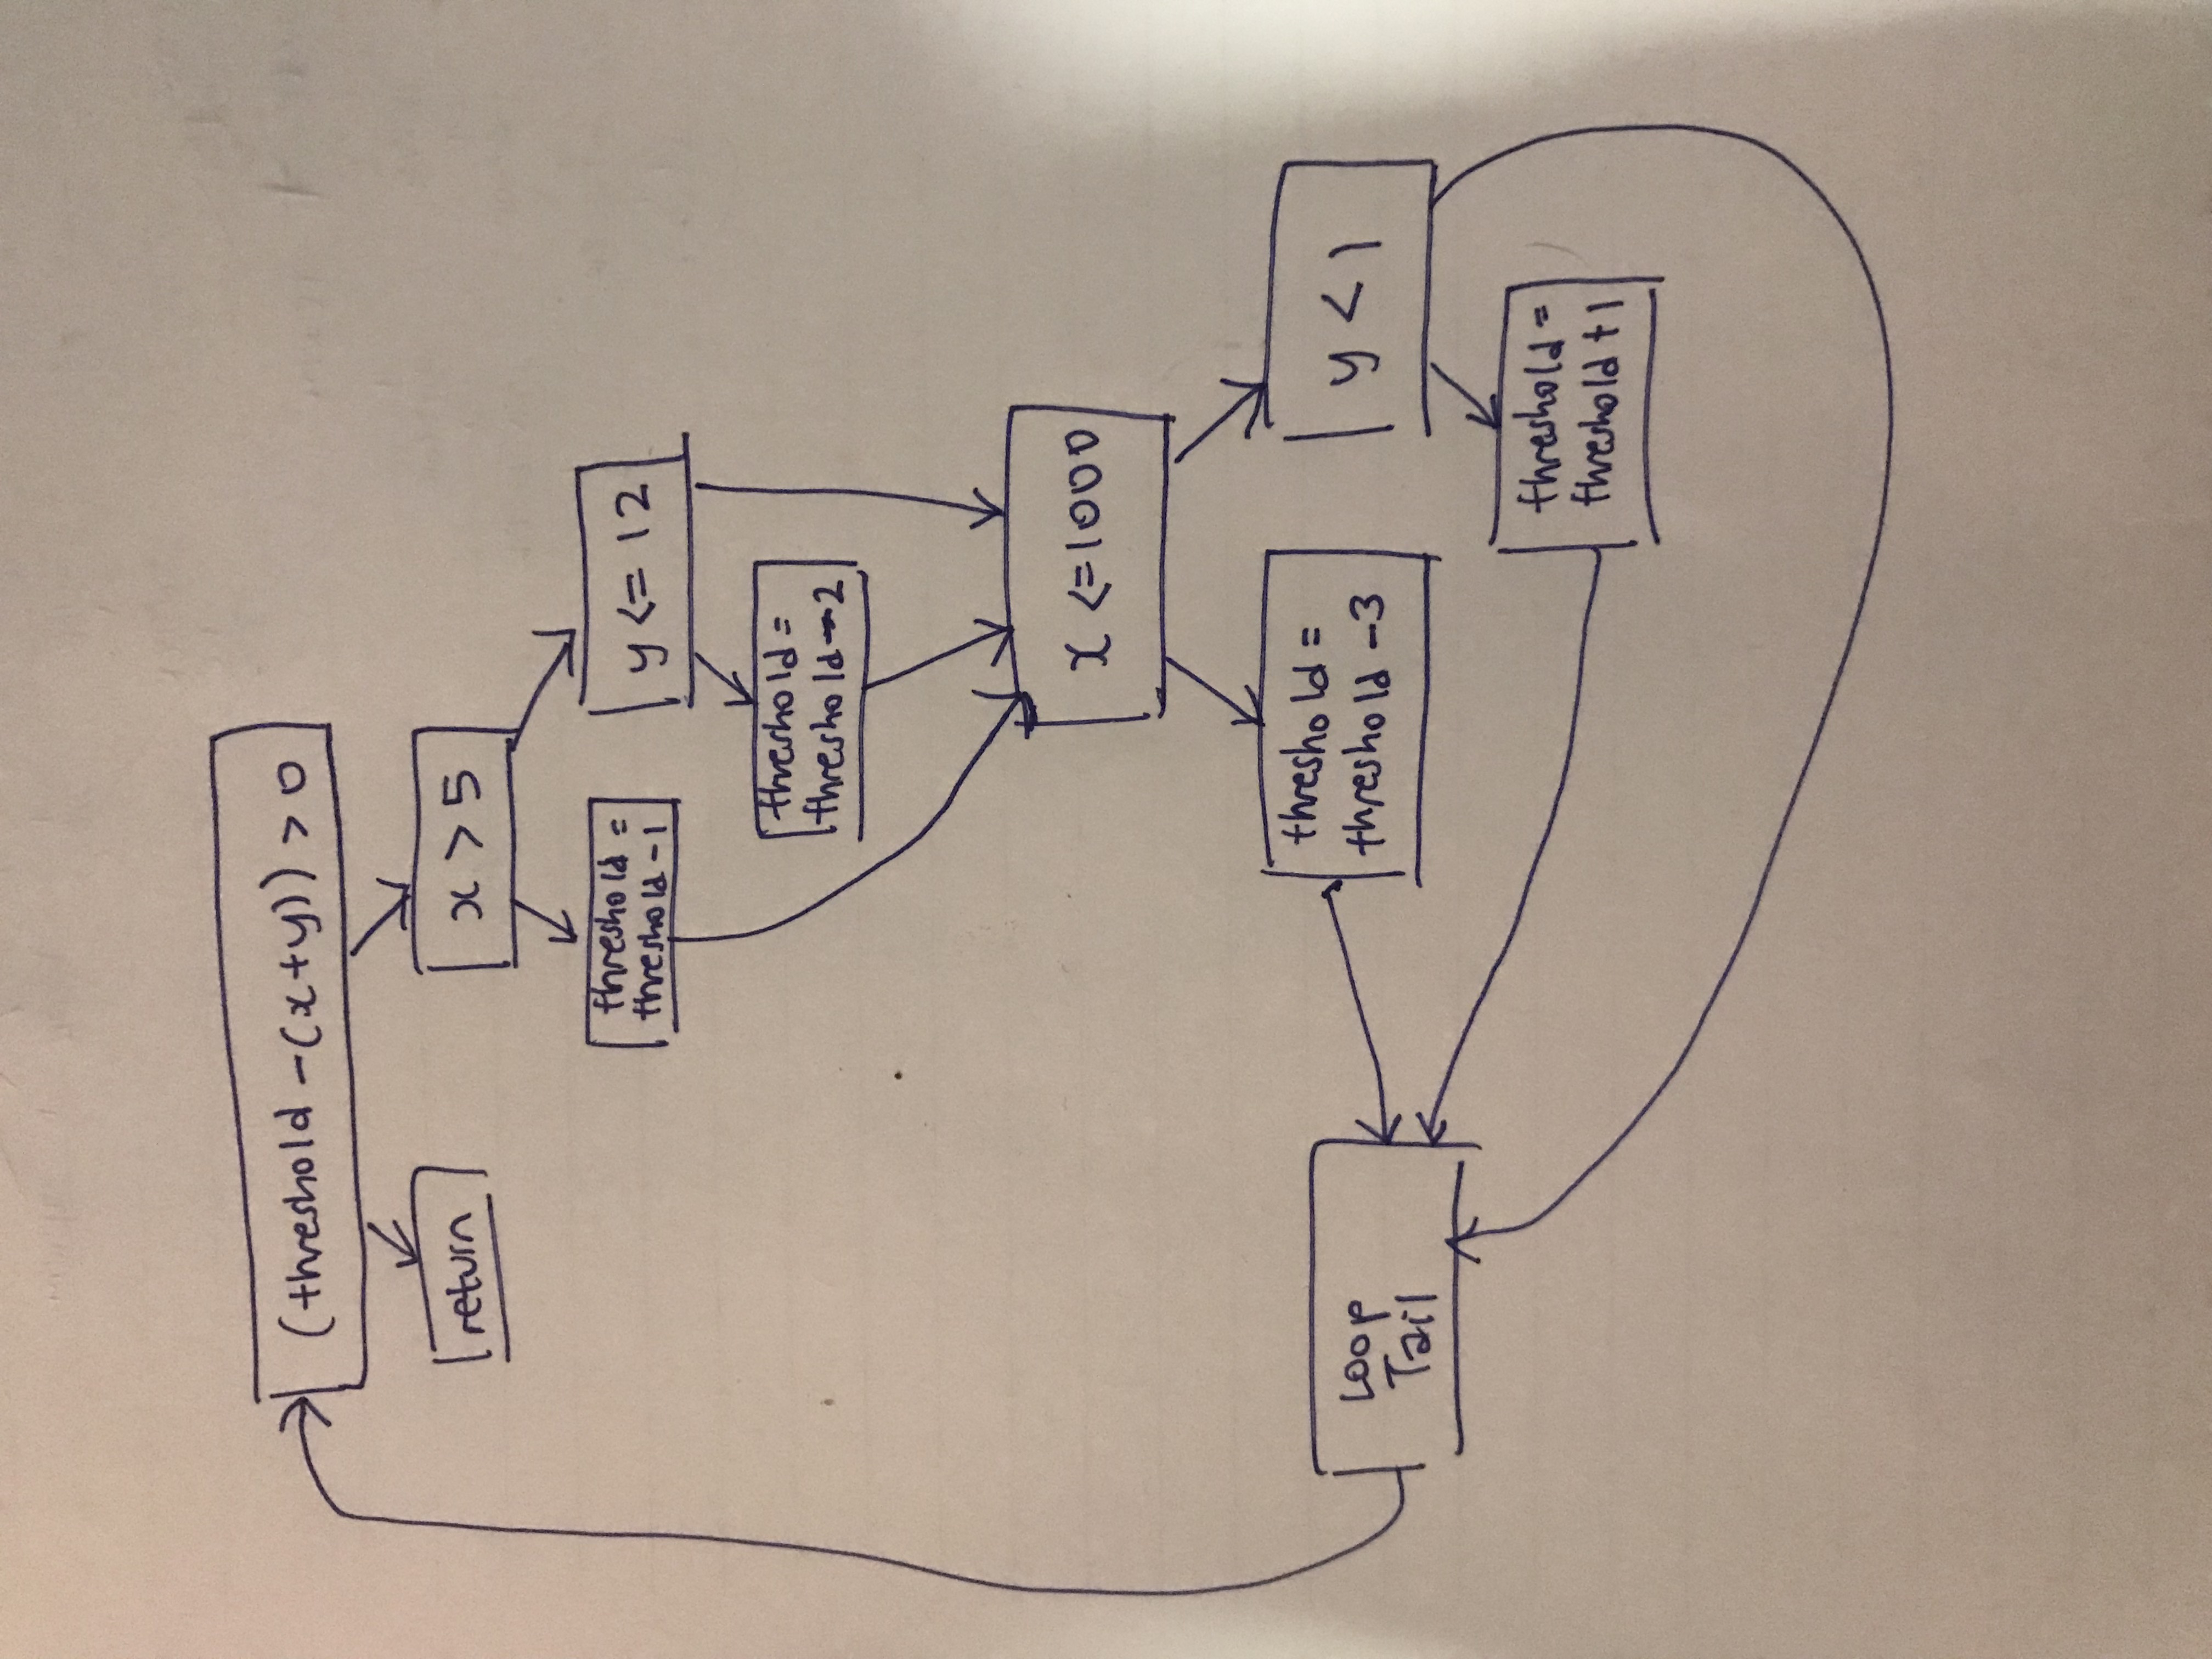 (threshold - (x+y)) > 0
return
x > 5
threshold =
threshold - 1
y <= 12
threshold =
threshold - 2
x <= 1000
threshold =
threshold - 3
y < 1
Loop
Tail
threshold =
threshold + 1